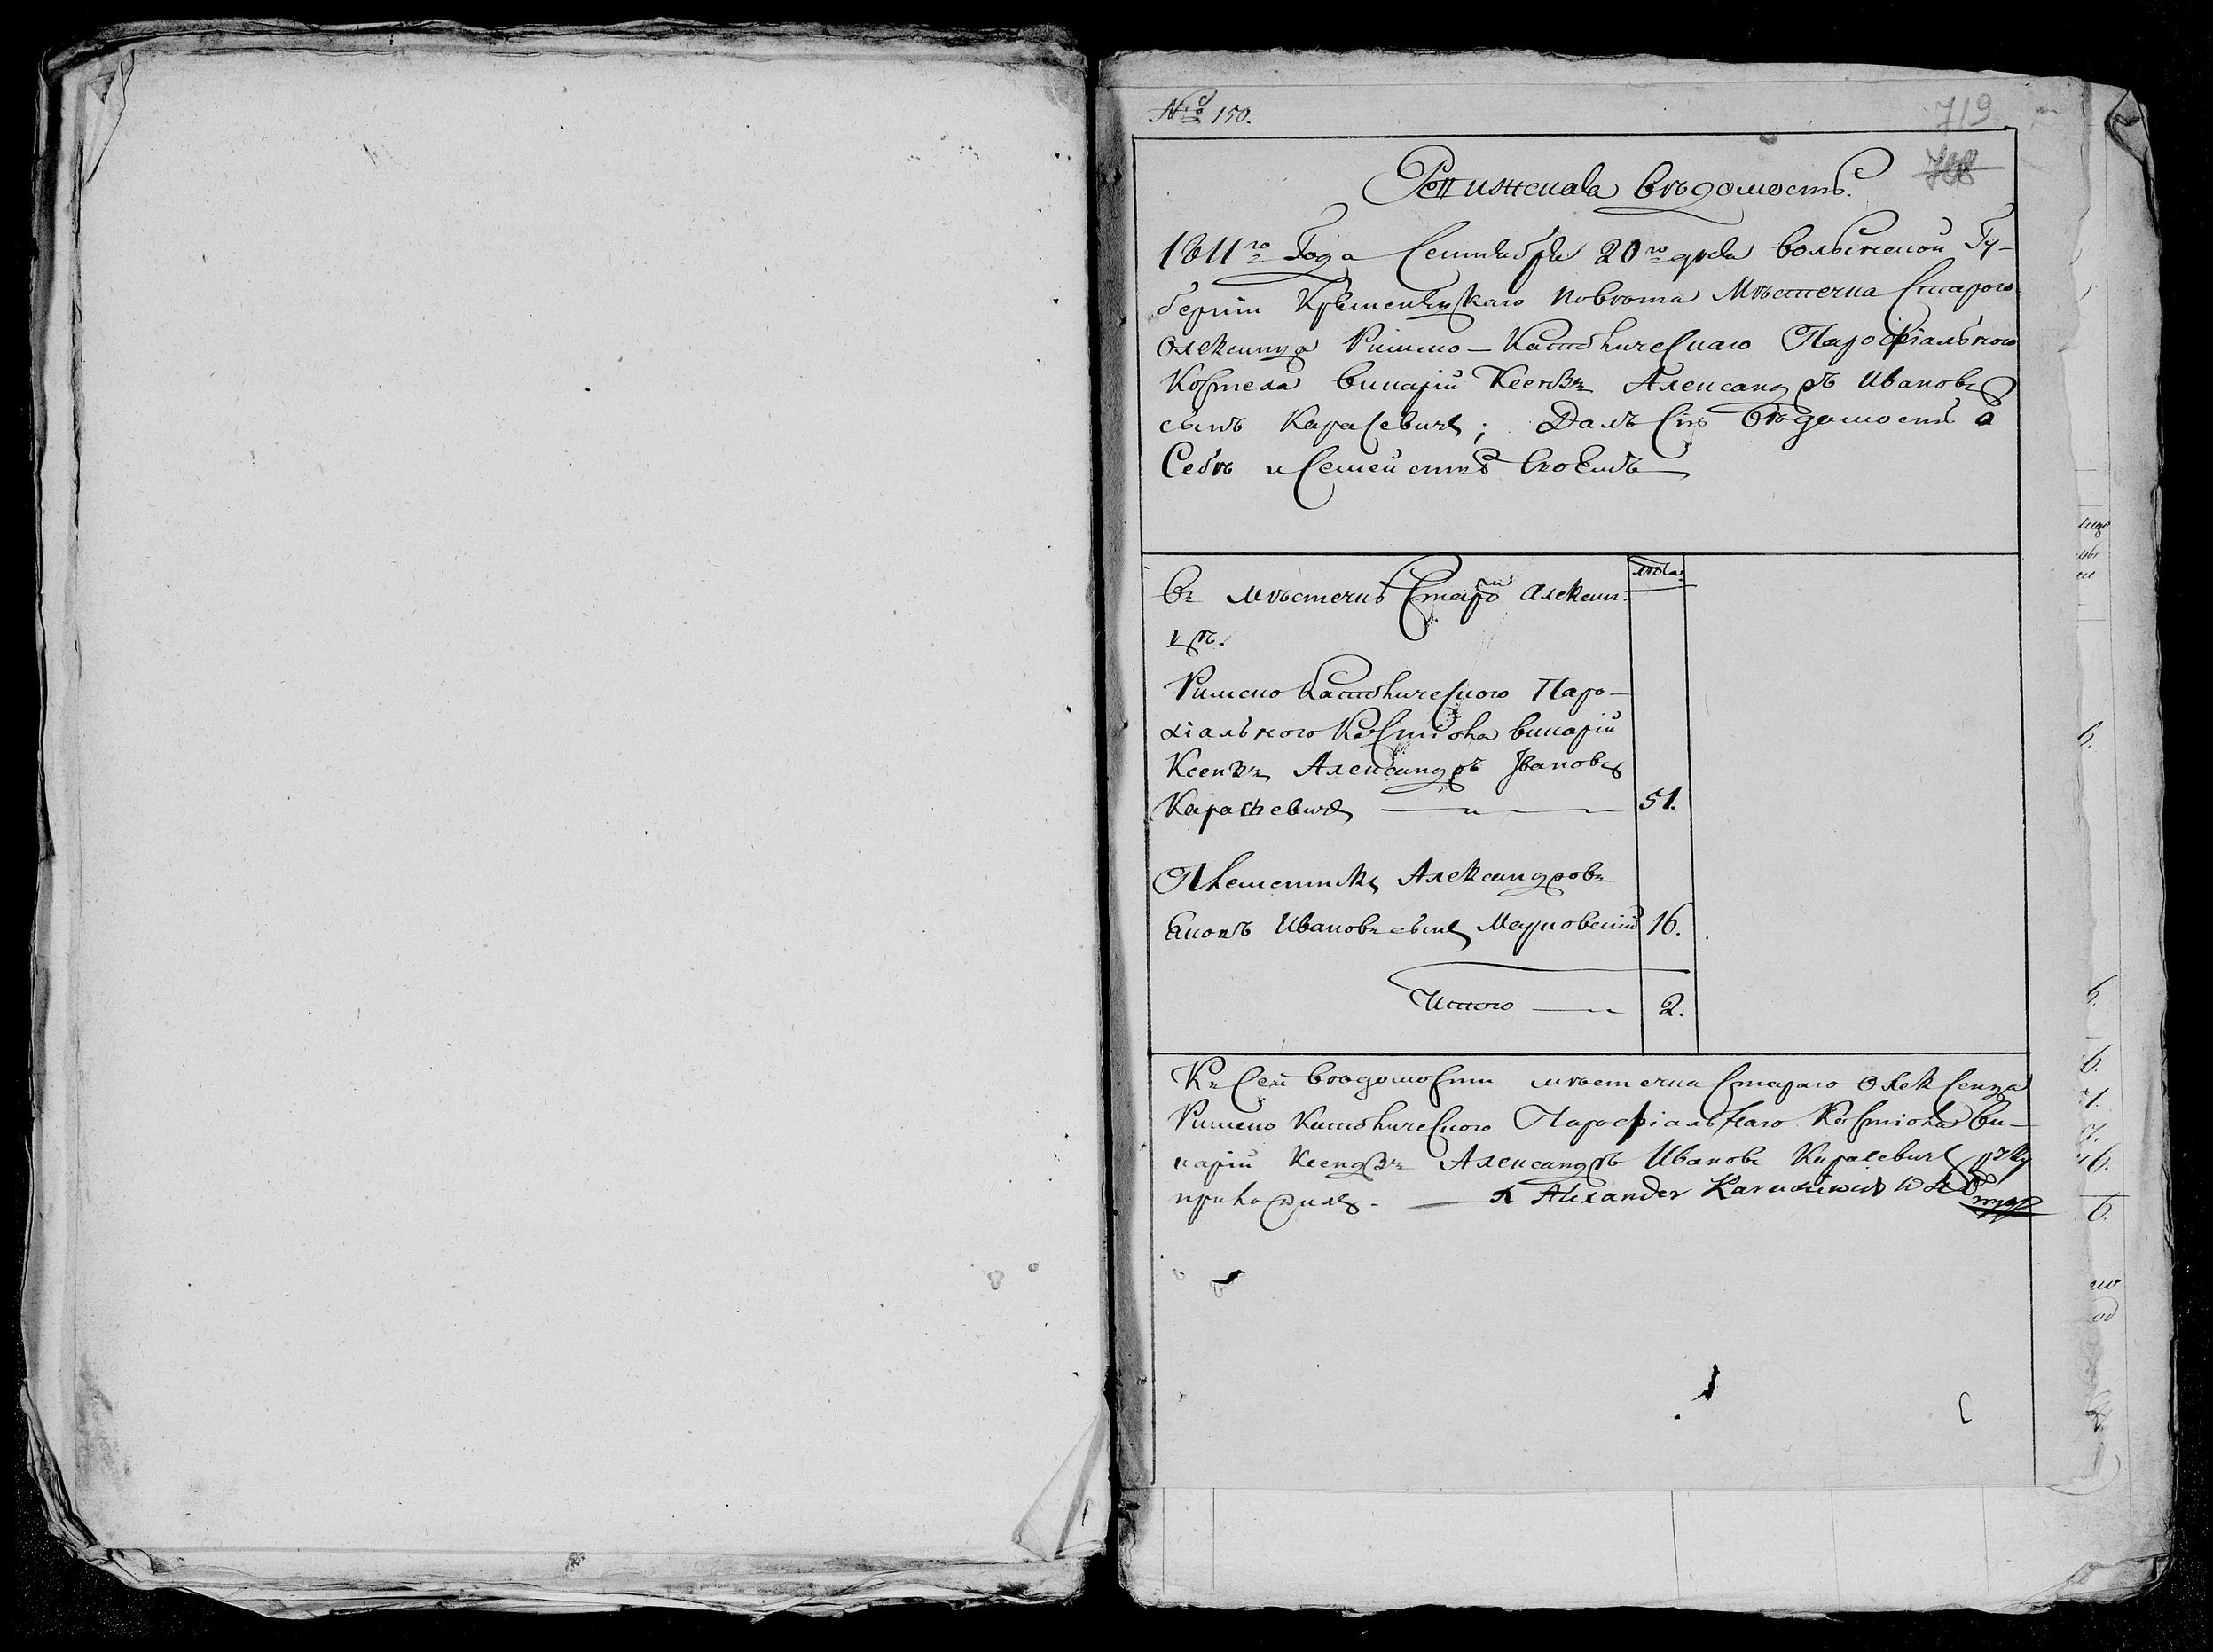 № 150.
719
Ревижская вѣдомость.
1811го Года Сентября 20го дня Волынской Гу-
берніи Кременецкаго повѣта Мѣстечка Старого
Олексинца Римско-Католическаго Парофіального
Костела викарій Ксензъ Александръ Ивановъ
сынъ Карасевичъ; Далъ Сію вѣдомость о
Себѣ и Семействѣ Своемъ
лѣта.
Въ мѣстечкѣ Старомъ Алексин-
цѣ.
Римско Католического Паро-
хіального Костіола викарій
Ксензъ Александръ Івановъ
Карасевичъ 51.
Племенникъ Александровъ
Ивановъ сынъ 16.
Итого 2.
Къ Сей вѣдомости мѣстечка Стараго Олексенца
Римско Католического Парофіальнаго Костіола Ви-
карій Ксендзъ Александръ Ивановъ Карасевичъ руку
приложилъ. X Alexander Karasiewicz